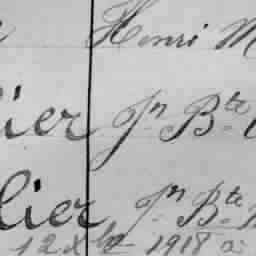 Henri M
lier Jn Bte
lier Jn Bte
12 Xbre 1918 à